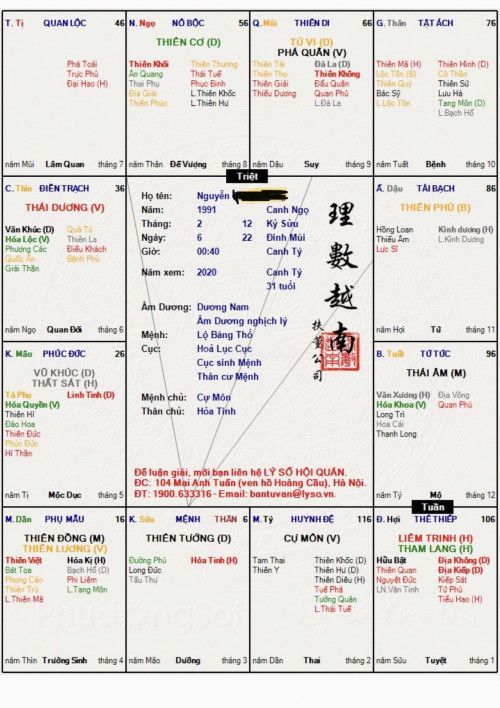 T. Tị QUAN LỘC 46
Phá Toái
Trực Phù
Đại Hao (H)
năm Mùi Lâm Quan tháng 7
N. Ngọ NÔ BỘC 56
THIÊN CƠ (D)
Thiên Khôi Thiên Thương
Ân Quang Thái Tuế
Thai Phụ Phục Binh
Địa Giải L.Thiên Khốc
Thiên Phúc L.Thiên Hư
năm Thân Đế Vượng tháng 8
Q. Mùi THIÊN DI 66
TỬ VI (D)
PHÁ QUÂN (V)
Thiên Tài Đà La (D)
Thiên Thọ Thiên Không
Thiên Giải Đẩu Quân
Thiếu Dương Quan Phủ
L.Đà La
năm Dậu Suy tháng 9
G. Thân TẬT ÁCH 76
Thiên Mã (H) Thiên Hình (D)
Lộc Tồn (B) Cô Thần
Thiên Quý Thiên Sứ
Bác Sỹ Lưu Hà
L.Lộc Tồn Tang Môn (D)
L.Bạch Hổ
năm Tuất Bệnh tháng 10
C. Thìn ĐIỀN TRẠCH 36
THÁI DƯƠNG (V)
Văn Khúc (D) Quả Tú
Hóa Lộc (V) Thiên La
Phượng Các Điếu Khách
Quốc Ấn Bệnh Phù
Giải Thần
năm Ngọ Quan Đới tháng 6
Triệt
Họ tên: Nguyễn
Năm: 1991 Canh Ngọ
Tháng: 2 12 Kỷ Sửu
Ngày: 6 22 Đinh Mùi
Giờ: 00:40 Canh Tý
Năm xem: 2020 Canh Tý
31 tuổi
Âm Dương: Dương Nam
Âm Dương nghịch lý
Mệnh: Lộ Bàng Thổ
Cục: Hoả Lục Cục
Cục sinh Mệnh
Thân cư Mệnh
Mệnh chủ: Cự Môn
Thân chủ: Hỏa Tinh
理數越南
扶董公司
Để luận giải, mời bạn liên hệ LÝ SỐ HỘI QUÁN.
ĐC: 104 Mai Anh Tuấn (ven hồ Hoàng Cầu), Hà Nội.
ĐT: 1900.633316 - Email: bantuvan@lyso.vn.
Ấ. Dậu TÀI BẠCH 86
THIÊN PHỦ (B)
Hồng Loan Kình dương (H)
Thiếu Âm L.Kình Dương
Lực Sĩ
năm Hợi Tử tháng 11
K. Mão PHÚC ĐỨC 26
VŨ KHÚC (D)
THẤT SÁT (H)
Tả Phụ Linh Tinh (D)
Hóa Quyền (V)
Thiên Hỉ
Đào Hoa
Thiên Đức
Phúc Đức
Hỉ Thần
năm Tị Mộc Dục tháng 5
B. Tuất TỬ TỨC 96
THÁI ÂM (M)
Văn Xương (H) Địa Võng
Hóa Khoa (V) Quan Phù
Long Trì
Hoa Cái
Thanh Long
năm Tý Mộ tháng 12
Tuần
M. Dần PHỤ MẪU 16
THIÊN ĐỒNG (M)
THIÊN LƯƠNG (V)
Thiên Việt Hóa Kị (H)
Bát Tọa Bạch Hổ (D)
Phong Cáo Phi Liêm
Thiên Trù L.Tang Môn
L.Thiên Mã
năm Thìn Trường Sinh tháng 4
K. Sửu MỆNH THÂN 6
THIÊN TƯỚNG (D)
Đường Phù Hỏa Tinh (H)
Long Đức
Tấu Thư
năm Mão Dưỡng tháng 3
M. Tý HUYNH ĐỆ 116
CỰ MÔN (V)
Tam Thai Thiên Khốc (D)
Thiên Y Thiên Hư (D)
Thiên Diêu (H)
Tuế Phá
Tướng Quân
L.Thái Tuế
năm Dần Thai tháng 2
Đ. Hợi THÊ THIẾP 106
LIÊM TRINH (H)
THAM LANG (H)
Hữu Bật Địa Không (D)
Thiên Quan Địa Kiếp (D)
Nguyệt Đức Kiếp Sát
LN.Văn Tinh Tử Phù
Tiểu Hao (H)
năm Sửu Tuyệt tháng 1